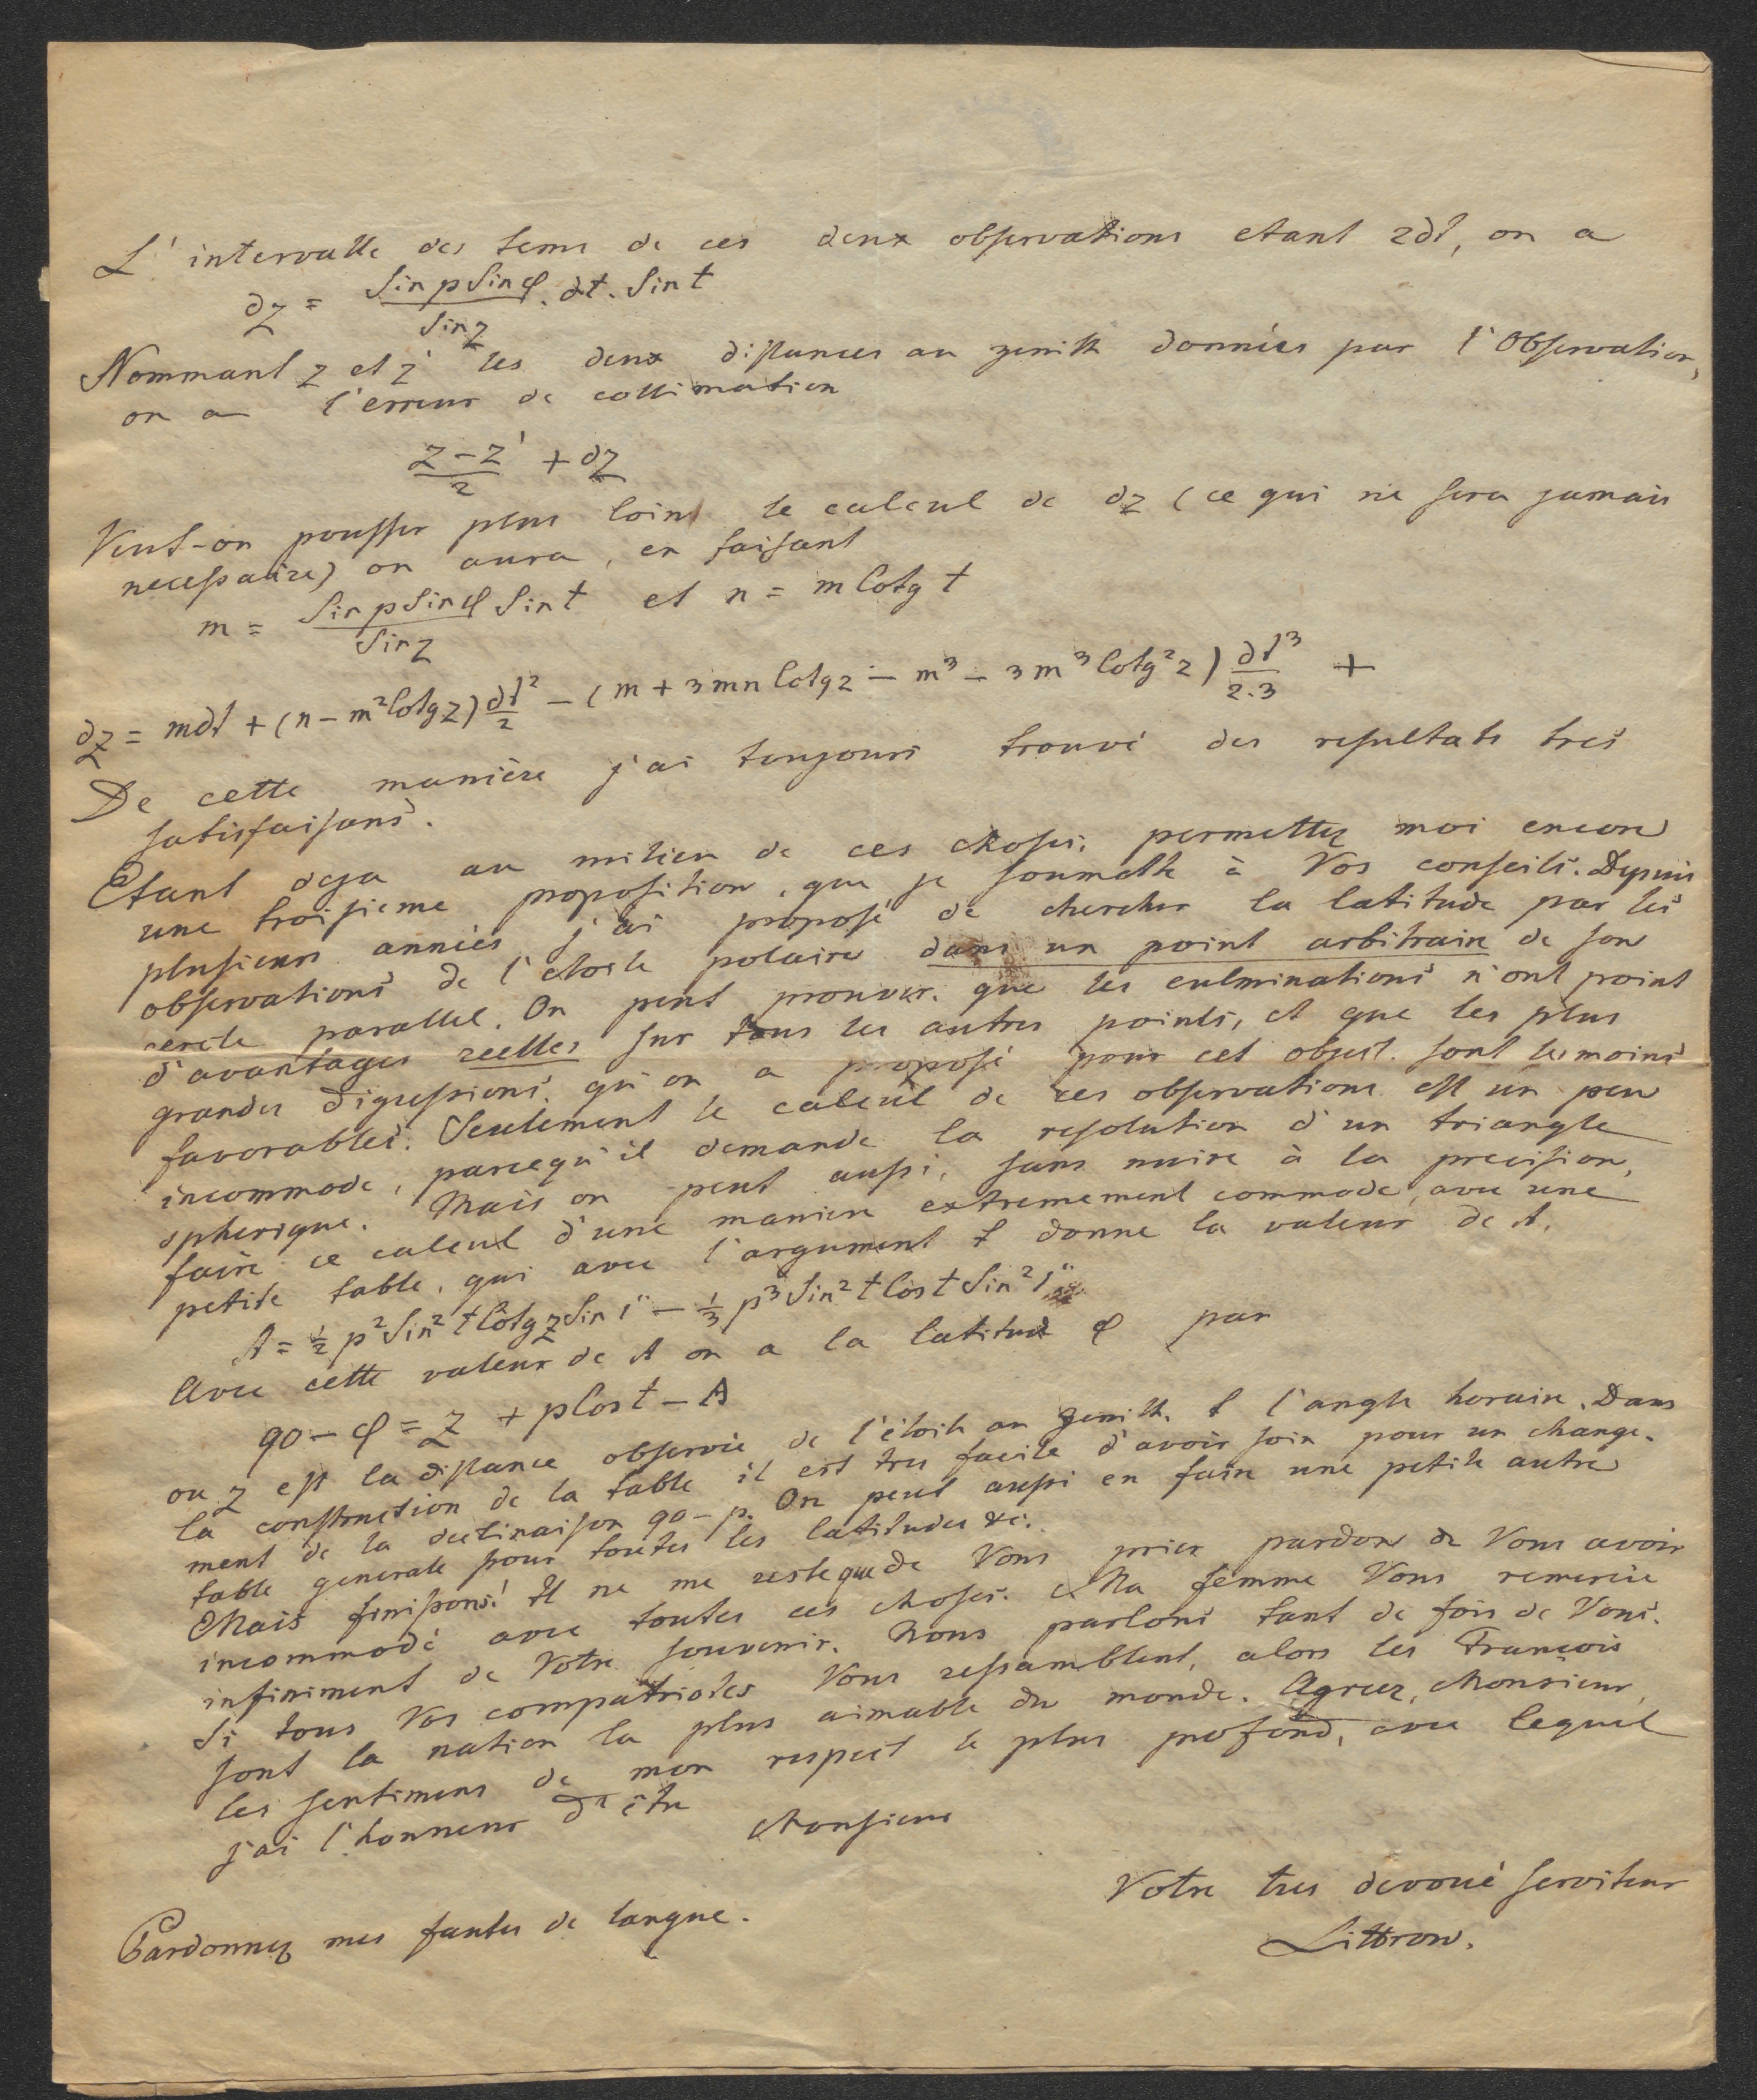 L'intervalle des tems de ces deux observations etant 2∂t, on a
∂z = Sin p Sin φ / Sin z . ∂t . Sin t
Nommant z et z' les deux distances au zenith données par l'Observation,
on a l'erreur de collimation
z - z' / 2 + ∂z
Veut-on pousser plus loin le calcul de ∂z (ce qui ne sera jamais
necessaire) on aura, en faisant
m = Sin p Sin φ / Sin z Sin t et n = m Cotg t
∂z = m∂t + (n - m² Cotg z) ∂t²/2 - (m + 3mn Cotg z - m³ - 3m³ Cotg² z) ∂t³/2.3 +
De cette manière j'ai toujours trouvé des resultats tres
satisfaisans.
Etant deja au milieu de ces choses, permettez moi encore
une troisieme proposition, que je soumette à Vos conseils. Depuis
plusieurs années j'ai proposé de chercher la latitude par les
observations de l'etoile polaire dans un point arbitraire de son
cercle parallel. On peut prouver, que les culminations n'ont point
d'avantages reelles sur tous les autres points, et que les plus
grandes digressions, qu'on a proposé pour cet object, sont les moins
favorables. Seulement le calcul de ces observations est un peu
incommode, parcequ'il demande la resolution d'un triangle
spherique. Mais on peut aussi, sans nuire à la precision,
faire ce calcul d'une maniere extremement commode, avec une
petite table, qui avec l'argument t donne la valeur de A.
A = ½ p² Sin² t Cotg z Sin 1" - ⅓ p³ Sin² t Cos t Sin² 1"
Avec cette valeur de A on a la latitude φ par
90 - φ = z + p Cos t - A
ou z est la distance observée de l'étoile au zenith, t l'angle horaire. Dans
la construction de la table il est tres facile d'avoir soin pour un change-
ment de la declinaison 90 - p. On peut aussi en faire une petite autre
table generale pour toutes les latitudes &c.
Mais finissons! Il ne me reste que de Vous prier pardon de Vous avoir
incommodé avec toutes ces choses. Ma femme Vous remercie
infiniment de Votre souvenir. Nous parlons tant de fois de Vous.
Si tous Vos compatriotes Vous ressamblent, alors les François
sont la nation la plus aimable du monde. Agreez, Monsieur,
les sentimens de mon respect le plus profond, avec lequel
j'ai l'honneur d'être
Monsieur
Votre tres devoué serviteur
Littrow.
Pardonnez mes fautes de langue.